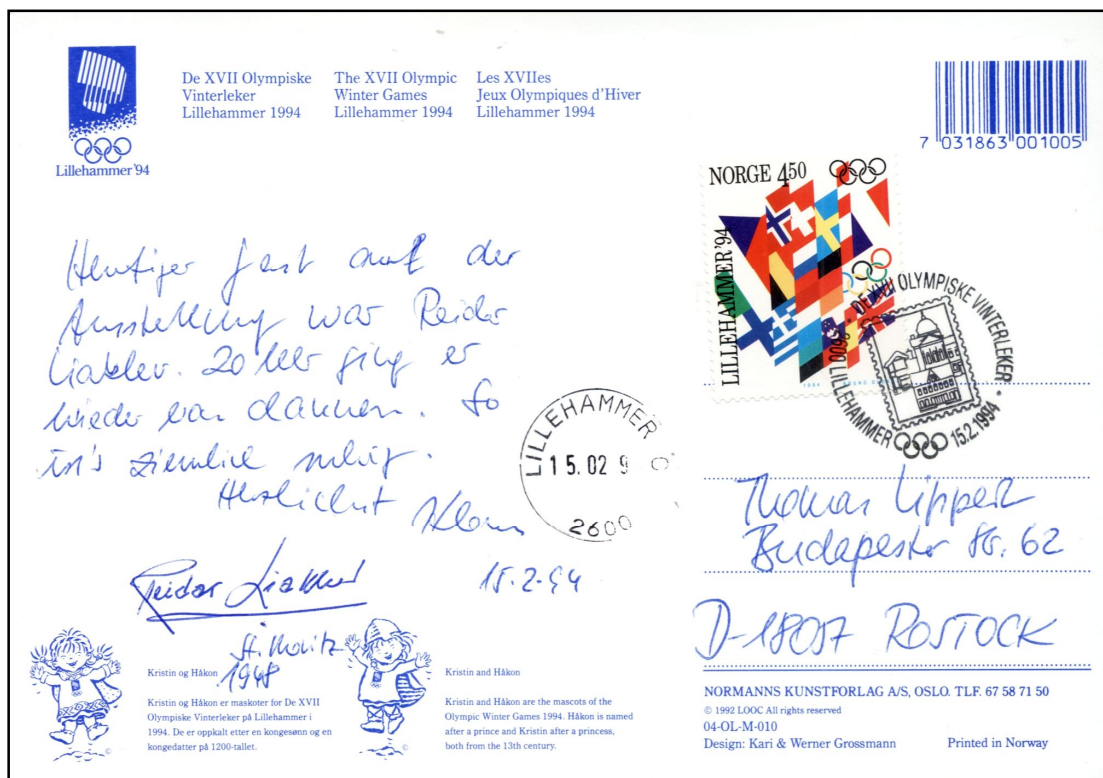 De XVII Olympiske
Vinterleker
Lillehammer 1994
The XVII Olympic
Winter Games
Lillehammer 1994
Les XVIIes
Jeux Olympiques d'Hiver
Lillehammer 1994
Lillehammer '94
7 031863 001005
NORGE 450
LILLEHAMMER '94
1994
DE XVII OLYMPISKE VINTERLEKER
2600 LILLEHAMMER
15.2.1994
Heutiger Gast auf der
Ausstellung war Reidar
Liaklev. 20 Uhr ging er
wieder von dannen. So
ist's ziemlich ruhig.
Herzlichst Klaus
15.2.94
Reidar Liaklev
St. Moritz
1948
LILLEHAMMER
15.02 9
2600
Thomas Lippert
Budapester Str. 62
D-18057 ROSTOCK
Kristin og Håkon
Kristin og Håkon er maskoter for De XVII
Olympiske Vinterleker på Lillehammer i
1994. De er oppkalt etter en kongesønn og en
kongedatter på 1200-tallet.
Kristin and Håkon
Kristin and Håkon are the mascots of the
Olympic Winter Games 1994. Håkon is named
after a prince and Kristin after a princess,
both from the 13th century.
NORMANNS KUNSTFORLAG A/S, OSLO. TLF. 67 58 71 50
© 1992 LOOC All rights reserved
04-OL-M-010
Design: Kari & Werner Grossmann
Printed in Norway